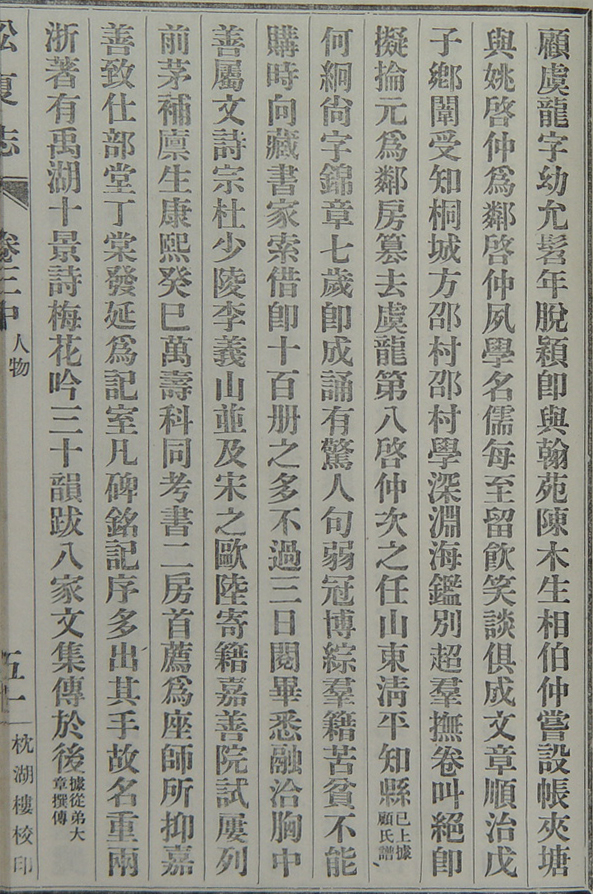 顧虞龍字幼允髫年脫穎卽與翰苑陳木生相伯仲嘗設帳夾塘
與姚啓仲爲鄰啓仲夙學名儒每至留飮笑談俱成文章順治戊
子鄕闈受知桐城方邵村邵村學深淵海鑑別超羣撫卷叫絕卽
擬掄元爲鄰房篡去虞龍第八啓仲次之任山東淸平知縣已上據顧氏譜
何絅尙字錦章七歲卽成誦有驚人句弱冠博綜羣籍苦貧不能
購時向藏書家索借卽十百册之多不過三日閱畢悉融洽胸中
善屬文詩宗杜少陵李義山並及宋之歐陸寄籍嘉善院試屢列
前茅補廩生康熙癸巳萬壽科同考書二房首薦爲座師所抑嘉
善致仕部堂丁棠發延爲記室凡碑銘記序多出其手故名重兩
浙著有禹湖十景詩梅花吟三十韻跋八家文集傳於後據從弟大章撰傳
松夏志 卷三中 人物 五十 枕湖樓校印